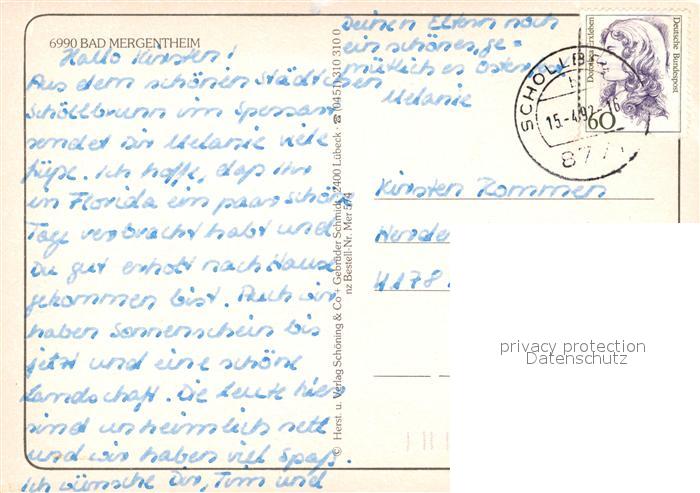 6990 BAD MERGENTHEIM
Hallo Kirsten!
Aus dem schönen Städtchen
Schöllbrunn im Spessart
sendet Dir Melanie viele
Grüße. Ich hoffe, daß Ihr
in Florida ein paar schöne
Tage verbracht habt und
Du gut erholt nach Hause
gekommen bist. Auch wir
haben Sonnenschein bis
jetzt und eine schöne
Landschaft. Die Leute hier
sind unheimlich nett
und wir haben viel Spaß.
Ich wünsche Dir, Timi und
Deinen Eltern noch
ein schönes, ge=
mütliches Osterfest
Melanie
© Herst. u. Verlag Schöning & Co + Gebrüder Schmidt · 2400 Lübeck · ☎ (0451) 310 310 0
nz Bestell-Nr. Mer 574
SCHÖLLB
15.-4.92-16
877
Deutsche Bundespost
60
Kirsten Rommen
4178
privacy protection
Datenschutz